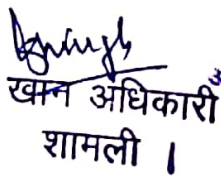 खान अधिकारी
शामली ।